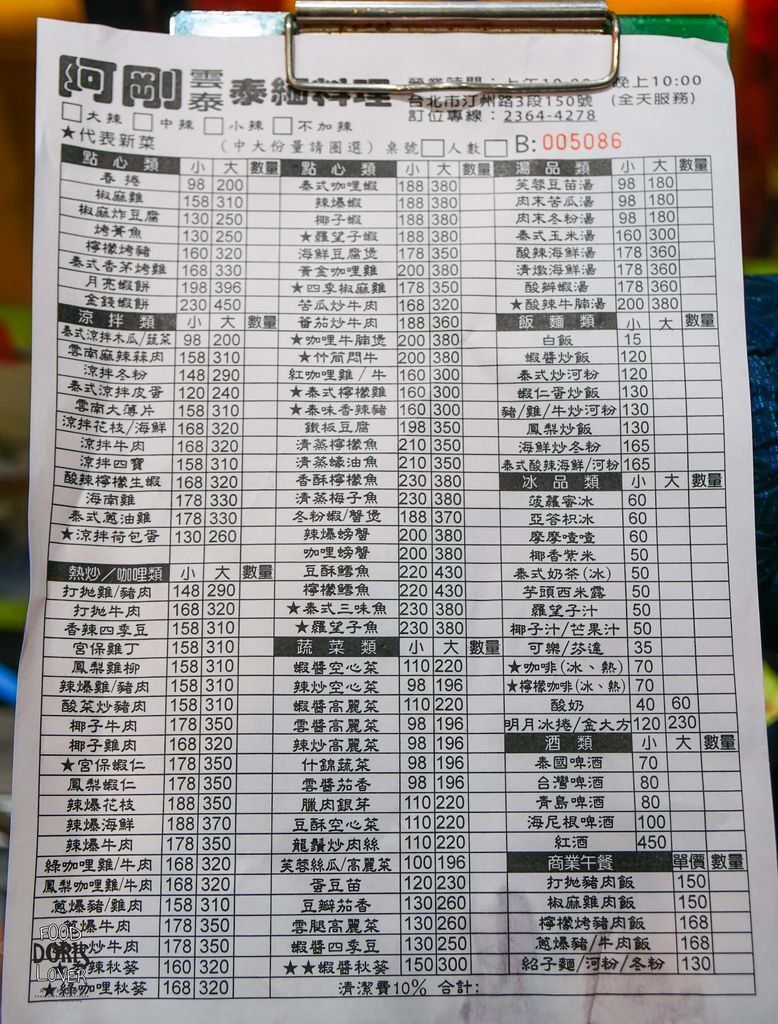 阿剛 雲泰 泰緬料理
晚上10:00
台北市汀州路3段150號 (全天服務)
訂位專線：2364-4278
□大辣 □中辣 □小辣 □不加辣
★代表新菜 (中大份量請圈選) 桌號□人數□ B:005086
點心類 小 大 數量
春捲 98 200
椒麻雞 158 310
椒麻炸豆腐 130 250
烤薺魚 130 250
檸檬烤豬 160 320
泰式香茅烤雞 168 330
月亮蝦餅 198 396
金錢蝦餅 230 450
涼拌類 小 大 數量
泰式涼拌木瓜/蔬菜 98 200
雲南麻辣蒜肉 158 310
涼拌冬粉 148 290
泰式涼拌皮蛋 120 240
雲南大薄片 158 310
涼拌花枝/海鮮 168 320
涼拌牛肉 168 320
涼拌四寶 158 310
酸辣檸檬生蝦 168 320
海南雞 178 330
泰式蔥油雞 178 330
★涼拌荷包蛋 130 260
熱炒/咖哩類 小 大 數量
打拋雞/豬肉 148 290
打拋牛肉 168 320
香辣四季豆 158 310
宮保雞丁 158 310
鳳梨雞柳 158 310
辣爆雞/豬肉 158 310
酸菜炒豬肉 158 310
椰子牛肉 178 350
椰子雞肉 168 320
★宮保蝦仁 178 350
鳳梨蝦仁 178 350
辣爆花枝 188 350
辣爆海鮮 188 370
辣爆牛肉 178 350
綠咖哩雞/牛肉 168 320
鳳梨咖哩雞/牛肉 168 320
蔥爆豬/雞肉 158 310
蔥爆牛肉 178 350
油炒牛肉 178 350
辣秋葵 160 320
★綠咖哩秋葵 168 320
點心類 小 大 數量
泰式咖哩蝦 188 380
辣爆蝦 188 380
椰子蝦 188 380
★羅望子蝦 188 380
海鮮豆腐煲 178 350
黃金咖哩雞 200 380
★四季椒麻雞 178 350
苦瓜炒牛肉 168 320
番茄炒牛肉 188 360
★咖哩牛腩煲 200 380
★竹筒悶牛 200 380
紅咖哩雞/牛 160 300
★泰式檸檬雞 160 300
★泰味香辣豬 160 300
鐵板豆腐 198 350
清蒸檸檬魚 210 350
清蒸蠔油魚 210 350
香酥檸檬魚 230 380
清蒸梅子魚 230 380
冬粉蝦/蟹煲 188 370
辣爆螃蟹 200 380
咖哩螃蟹 200 380
豆酥鱈魚 220 430
檸檬鱈魚 220 430
★泰式三味魚 230 380
★羅望子魚 230 380
蔬菜類 小 大 數量
蝦醬空心菜 110 220
辣炒空心菜 98 196
蝦醬高麗菜 110 220
雲醬高麗菜 98 196
辣炒高麗菜 98 196
什錦蔬菜 98 196
雲醬茄香 98 196
臘肉銀芽 110 220
豆酥空心菜 110 220
龍鬚炒肉絲 110 220
芙蓉絲瓜/高麗菜 100 196
蛋豆苗 120 230
豆瓣茄香 130 260
雲腿高麗菜 130 260
蝦醬四季豆 130 250
★★蝦醬秋葵 150 300
清潔費10% 合計:
湯品類 小 大 數量
芙蓉豆苗湯 98 180
肉末苦瓜湯 98 180
肉末冬粉湯 98 180
泰式玉米湯 160 300
酸辣海鮮湯 178 360
清燉海鮮湯 178 360
酸辣蝦湯 178 360
★酸辣牛腩湯 200 380
飯麵類 小 大 數量
白飯 15
蝦醬炒飯 120
泰式炒河粉 120
蝦仁蛋炒飯 130
豬/雞/牛炒河粉 130
鳳梨炒飯 130
海鮮炒冬粉 165
泰式酸辣海鮮/河粉 165
冰品類 小 大 數量
菠蘿蜜冰 60
亞答枳冰 60
摩摩喳喳 60
椰香紫米 50
泰式奶茶(冰) 50
芋頭西米露 50
羅望子汁 50
椰子汁/芒果汁 50
可樂/芬達 35
★咖啡(冰、熱) 70
★檸檬咖啡(冰、熱) 70
酸奶 40 60
明月冰捲/金大方 120 230
酒類 小 大 數量
泰國啤酒 70
台灣啤酒 80
青島啤酒 80
海尼根啤酒 100
紅酒 450
商業午餐 單價 數量
打拋豬肉飯 150
椒麻雞肉飯 150
檸檬烤豬肉飯 168
蔥爆豬/牛肉飯 168
紹子麵/河粉/冬粉 130
FOOD
DORIS
LOVER